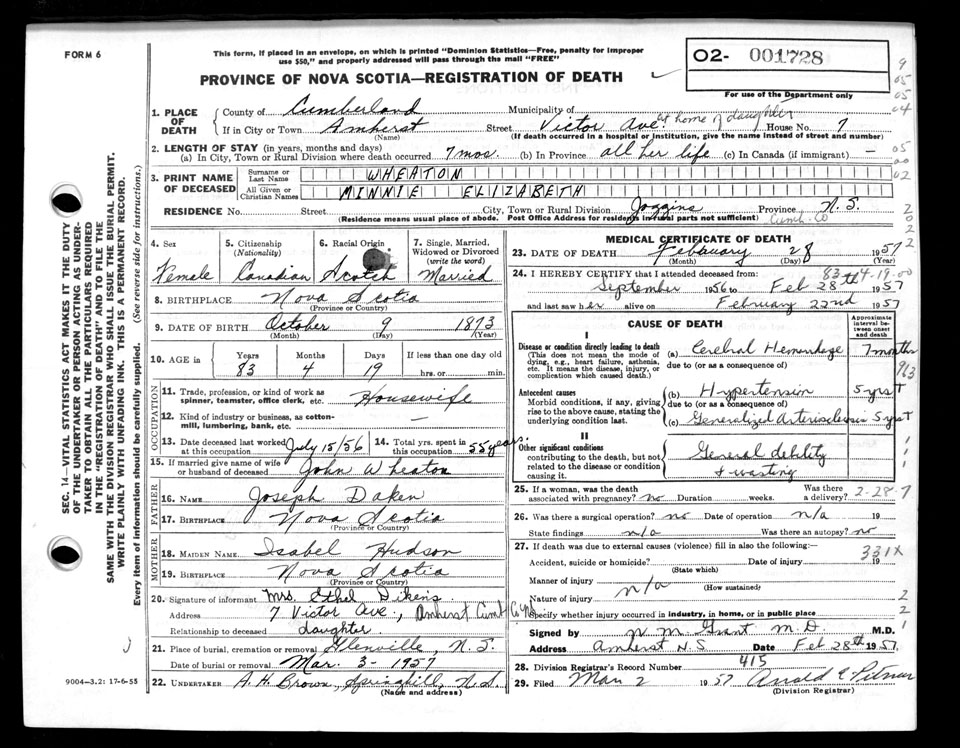 FORM 6
This form, if placed in an envelope, on which is printed "Dominion Statistics—Free, penalty for improper
use $50," and properly addressed will pass through the mail "FREE"
PROVINCE OF NOVA SCOTIA—REGISTRATION OF DEATH
02- 001728
For use of the Department only
9
05
05
04
05
00
02
SEC. 14—VITAL STATISTICS ACT MAKES IT THE DUTY
OF THE UNDERTAKER OR PERSON ACTING AS UNDER-
TAKER TO OBTAIN ALL THE PARTICULARS REQUIRED
IN THE "REGISTRATION OF DEATH" AND TO FILE THE
SAME WITH THE DIVISION REGISTRAR WHO SHALL ISSUE THE BURIAL PERMIT.
WRITE PLAINLY WITH UNFADING INK. THIS IS A PERMANENT RECORD.
Every item of information should be carefully supplied. (See reverse side for instructions.)
1. PLACE OF DEATH
County of Cumberland Municipality of
If in City or Town Amherst Street Victor Ave. at home of daughter House No. 7
(Name) (If death occurred in a hospital or institution, give the name instead of street and number)
2. LENGTH OF STAY (in years, months and days)
(a) In City, Town or Rural Division where death occurred 7 mos. (b) In Province all her life (c) In Canada (if immigrant) —
3. PRINT NAME OF DECEASED
Surname or Last Name WHEATON
All Given or Christian Names MINNIE ELIZABETH
RESIDENCE No. Street City, Town or Rural Division Joggins Province N.S.
(Residence means usual place of abode. Post Office Address for residents in rural parts not sufficient) Cumb. Co
4. Sex
Female
5. Citizenship (Nationality)
Canadian
6. Racial Origin
Scotch
7. Single, Married, Widowed or Divorced (write the word)
Married
8. BIRTHPLACE Nova Scotia
(Province or Country)
9. DATE OF BIRTH October 9 1873
(Month) (Day) (Year)
10. AGE in Years Months Days If less than one day old
83 4 19 hrs. or min.
OCCUPATION
11. Trade, profession, or kind of work as
spinner, teamster, office clerk, etc. Housewife
12. Kind of industry or business, as cotton-
mill, lumbering, bank, etc. —
13. Date deceased last worked at this occupation July 15/56
14. Total yrs. spent in this occupation 55 years.
15. If married give name of wife
or husband of deceased John Wheaton
FATHER
16. NAME Joseph Daken
17. BIRTHPLACE Nova Scotia
(Province or Country)
MOTHER
18. MAIDEN NAME. Isabel Hudson
19. BIRTHPLACE Nova Scotia
(Province or Country)
20. Signature of informant Mrs. Ethel Dikens
Address 7 Victor Ave., Amherst Cumb Co NS
Relationship to deceased daughter.
21. Place of burial, cremation or removal Glenville, N.S.
Date of burial or removal Mar. 3 - 1957
22. UNDERTAKER A. H. Brown, Springhill, N.S.
(Name and address)
9004—3.2: 17-6-55
MEDICAL CERTIFICATE OF DEATH
23. DATE OF DEATH February 28 1957
(Month) (Day) (Year)
83-4-19-00
24. I HEREBY CERTIFY that I attended deceased from:
September 1956 to Feb 28th 1957
and last saw her alive on February 22nd 1957
CAUSE OF DEATH
Approximate interval between onset and death
I
Disease or condition directly leading to death
(This does not mean the mode of
dying, e.g., heart failure, asthenia,
etc. It means the disease, injury, or
complication which caused death.)
(a) Cerebral Hemorrhage 7 months
due to (or as a consequence of)
Antecedent causes
Morbid conditions, if any, giving
rise to the above cause, stating the
underlying condition last.
(b) Hypertension 5 yrs +
due to (or as a consequence of)
(c) Generalized Arteriosclerosis 5 yrs +
II
Other significant conditions
contributing to the death, but not
related to the disease or condition
causing it.
General debility
+ wasting
25. If a woman, was the death Was there
associated with pregnancy? no Duration weeks. a delivery?
2-28-7
26. Was there a surgical operation? no Date of operation n/a 19
State findings n/a Was there an autopsy? no
27. If death was due to external causes (violence) fill in also the following:—
331X
Accident, suicide or homicide? Date of injury 19
(State which)
Manner of injury
n/a (How sustained)
Nature of injury
Specify whether injury occurred in industry, in home, or in public place
Signed by N. M. Grant M.D. M.D.
Address Amherst N.S Date Feb 28th 1957.
28. Division Registrar's Record Number 415
29. Filed Mar 2 1957
(Division Registrar)